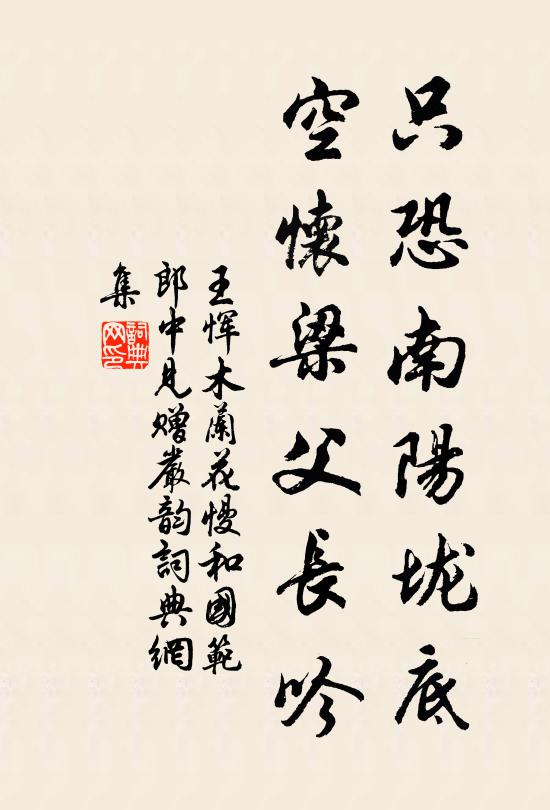 只恐南陽垅底
空懷梁父長吟
王惲木蘭花慢和國範
郎中見贈嚴韵詞典網
集
詞典網印